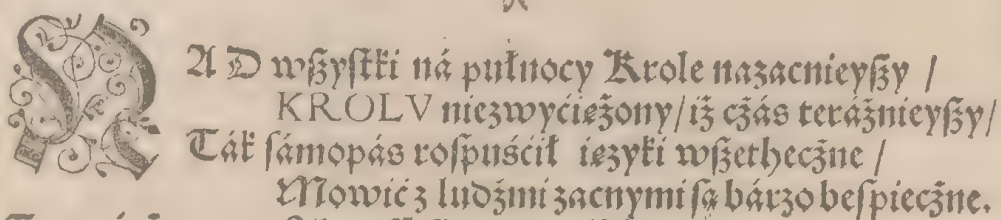 NAD wßyſtki ná pułnocy Krole nazacnieyßy /
KROLV niezwyćiężony / iż cżás teráźnieyßy /
Ták ſámopás roſpuśćił ięzyki wßethecżne /
Mowić z ludźmi zacnymi ſą bárzo beſpiecżne.